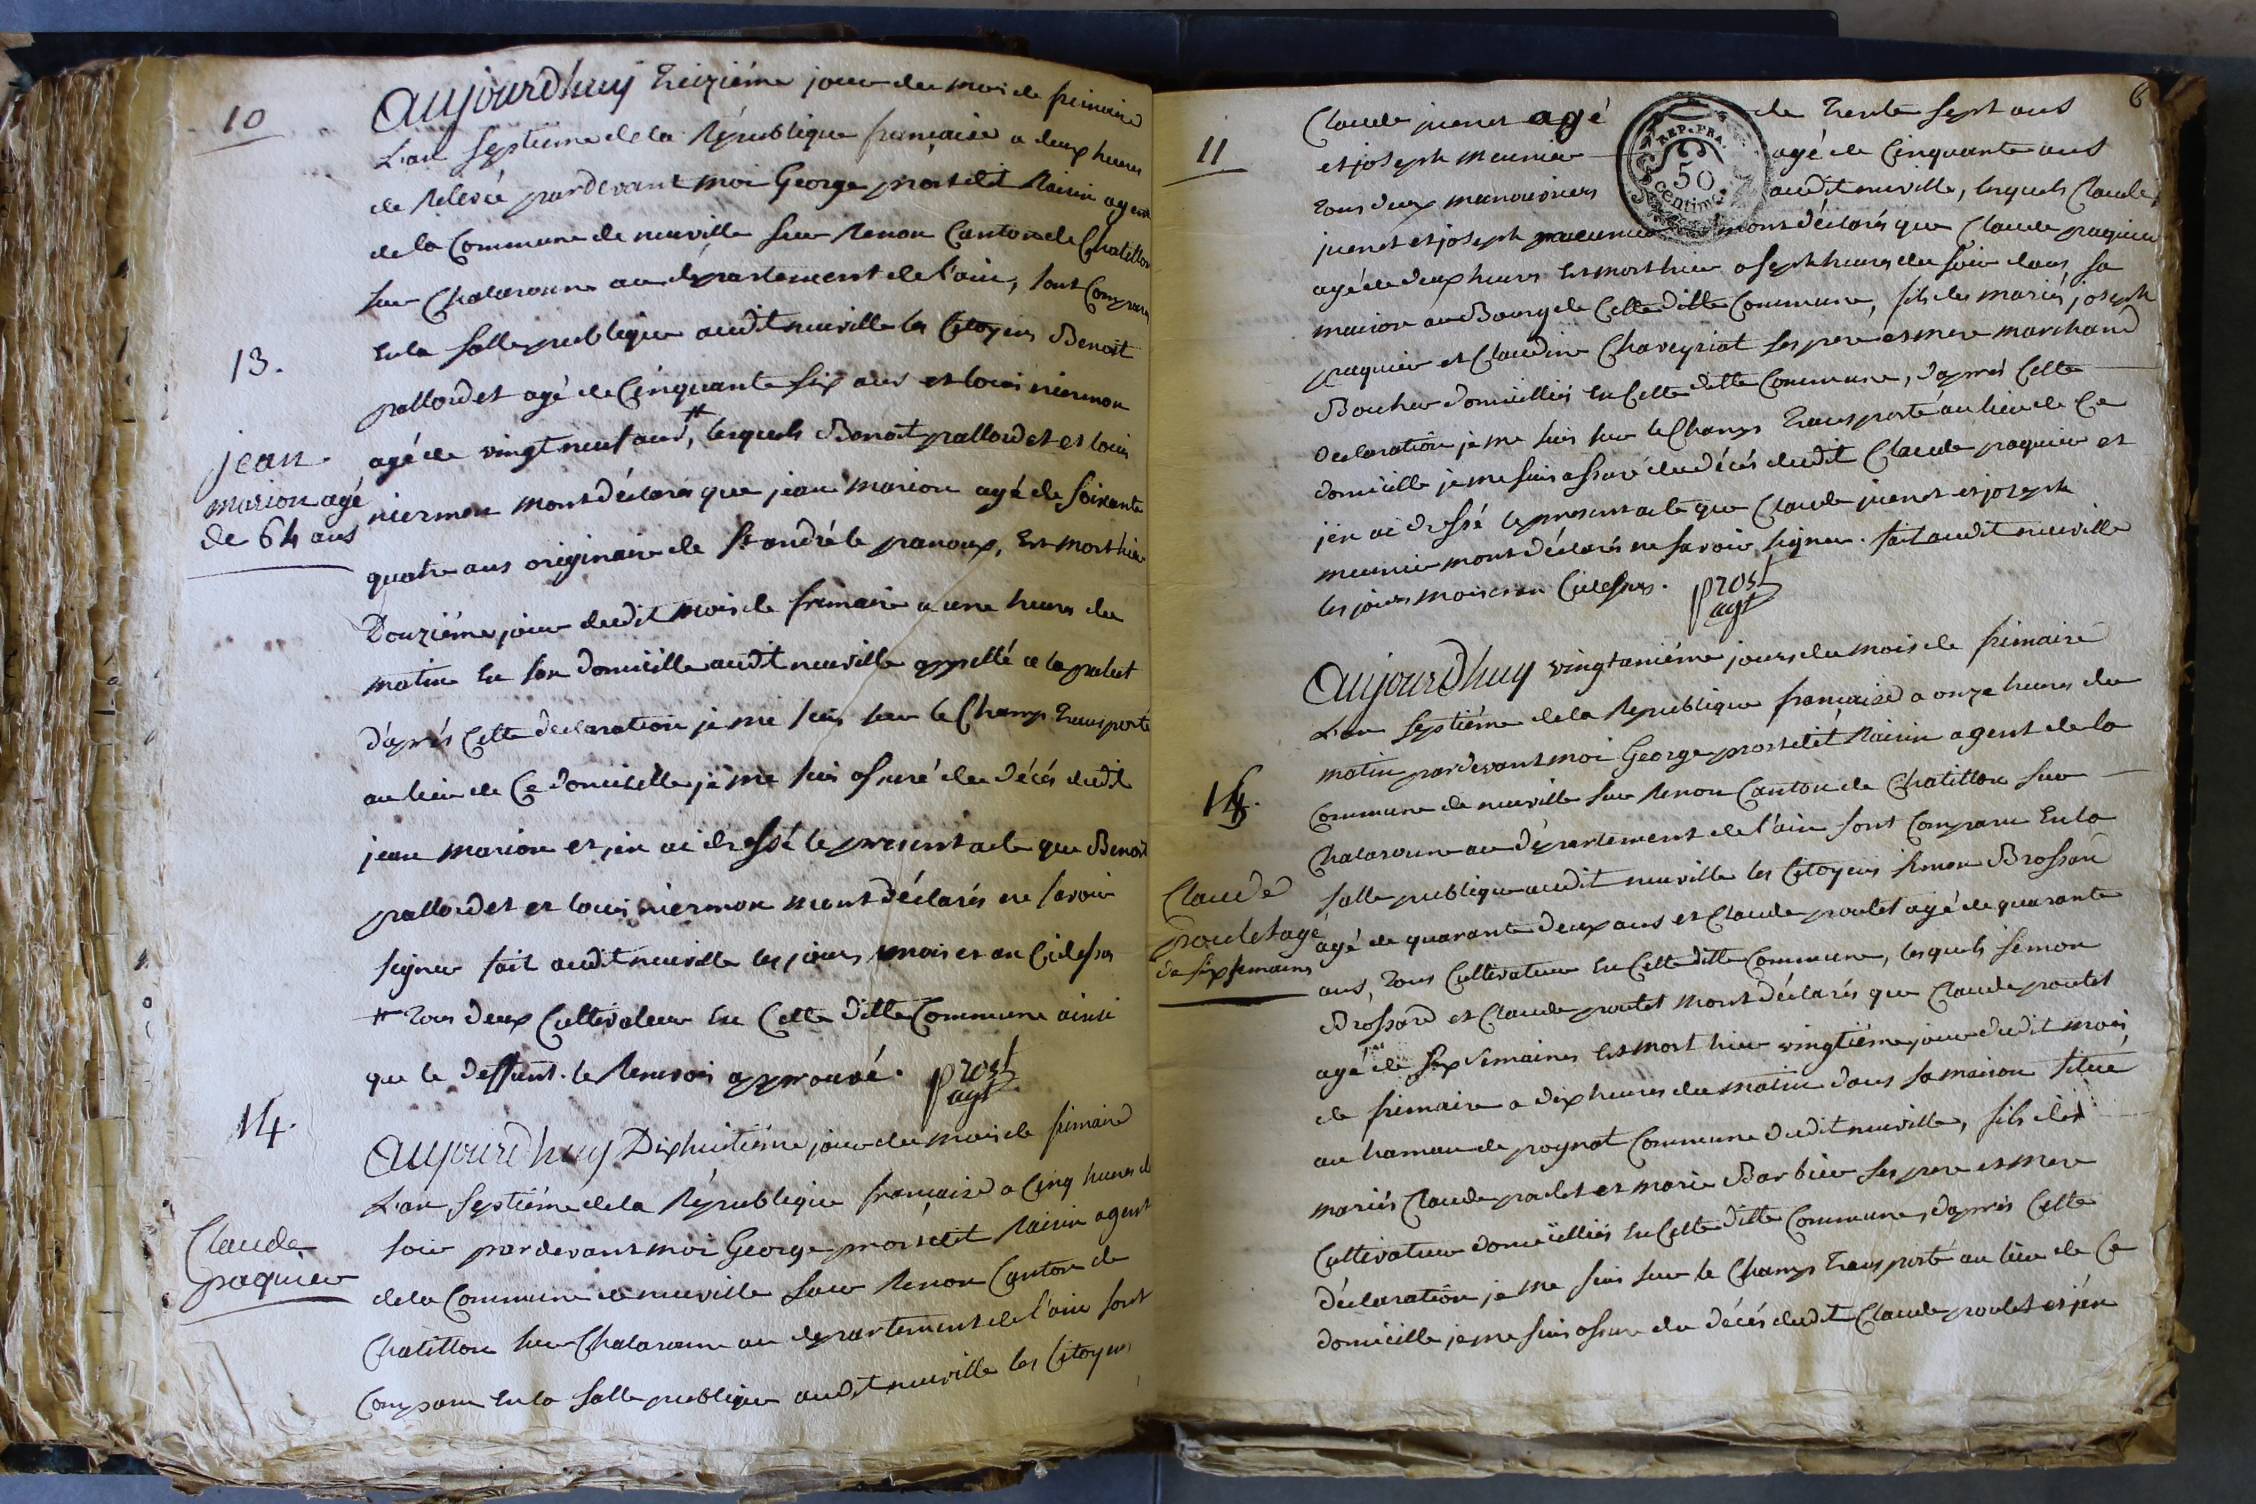 10
aujourdhuy treiziéme jour du mois de frimaire
L'an septieme de la République française a deux heures
de relevée pardevant moi George prost dit Raisin agent
de la Commune de neuville sur Renon Canton de Chatillon
sur Chalaronne au département de l'ain, sont Comparu
En la salle publique audit neuville les Citoyens Benoît
13.
pallordet agé de Cinquante six ans et louis niermon
agé de vingt neuf ans #, lesquels Benoit pallordet et louis
jean
marion agé
de 64 ans
niermon mont déclarés que jean marion agé de soixante
quatre ans originaire de St andré le panoux, Est mort hier
Douziéme jour dudit mois de frimaire a une heure du
matin En son domicille audit neuville appellé a la palud
d'après Cette declaration je me suis sur le Champ transporté
au lieu de Ce domicille je me suis assuré du décés dudit
jean marion et j'en ai dressé le present acte que Benoit
pallordet et louis niermon mont déclarés ne savoir
signer fait audit neuville les jours, mois et an Cidessus
# tous deux Cultivateur En Cette ditte Commune ainsi
que le deffunt. le Renvoi approuvé.
prost
agt
14.
aujourdhuy Dixhuitiéme jour du mois de frimaire
L'an septiéme de la République française a Cinq heures du
soir pardevant moi George prost dit Raisin agent
Claude
paquier
de la Commune de neuville sur Renon Canton de
Chatillon sur Chalaronne au département de l'ain sont
Comparu En la salle publique audit neuville les Citoyens
6
11
Claude juenet agé de trente sept ans
et joseph meunier agé de Cinquante ans
tous deux manouvriers audit neuville, lesquels Claude
juenet et joseph meunier mont déclarés que Claude paquier
REP. FRA.
50
centime.
agé de deux heures Est mort hier a sept heures du soir dans sa
maison au Bourg de Cette ditte Commune, fils des mariés joseph
paquier et Claudine Chaveyriat ses pere et mere marchand
Boucher domicilliés En Cette ditte Commune, d'après Cette
declaration je me suis sur le Champ transporté au lieu de Ce
domicille je me suis assuré du décés dudit Claude paquier et
j'en ai dressé le present acte que Claude juenet et joseph
meunier mont déclarés ne savoir signer. fait audit neuville
les jours mois et an Cidessus.
prost
agt
aujourdhuy vingtuniéme jours du mois de frimaire
L'an septiéme de la République française a onze heures du
matin pardevant moi George prost dit Raisin agent de la
Commune de neuville sur Renon Canton de Chatillon sur
Chalaronne au département de l'ain sont Comparu En la
salle publique audit neuville les Citoyens simon Brossard
Claude
poulet agé
de six semaines
agé de quarante deux ans et Claude poulet agé de quarante
ans, tous Cultivateur En Cette ditte Commune, lesquels simon
Brossard et Claude poulet mont déclarés que Claude poulet
agé de six semaines Est mort hier vingtiéme jour dudit mois
de frimaire a dix heures du matin dans sa maison située
au hameau de poynat Commune dudit neuville, fils des
mariés Claude poulet et marie Barbier ses pere et mere
Cultivateur domicilliés En Cette ditte Commune, d'après Cette
déclaration je me suis sur le Champ transporté au lieu de Ce
domicille je me suis assuré du décés dudit Claude poulet et j'en